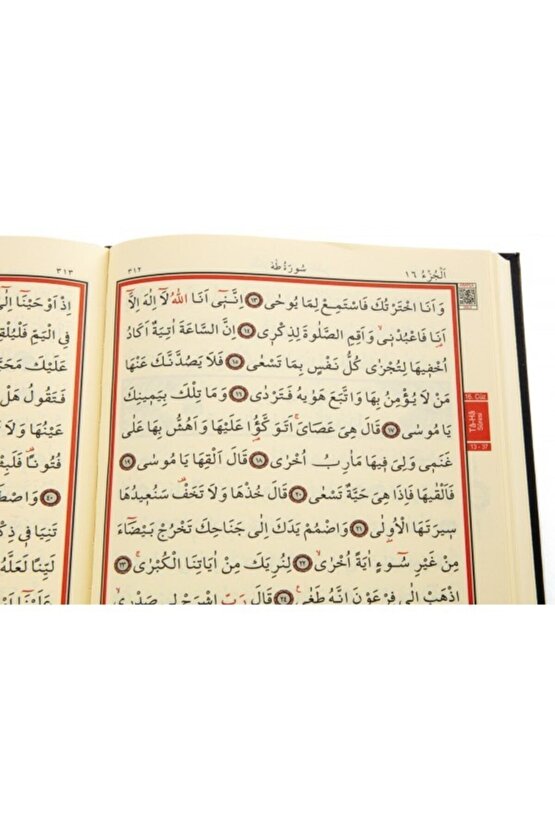 اَلْجُزْءُ ١٦ سُورَةُ طٰهٰ ٣١٢
وَاَنَا اخْتَرْتُكَ فَاسْتَمِعْ لِمَا يُوحٰى ١٣ اِنَّن۪ٓي اَنَا اللّٰهُ لَٓا اِلٰهَ اِلَّٓا
اَنَا۬ فَاعْبُدْن۪يۙ وَاَقِمِ الصَّلٰوةَ لِذِكْر۪ي ١٤ اِنَّ السَّاعَةَ اٰتِيَةٌ اَكَادُ
اُخْف۪يهَا لِتُجْزٰى كُلُّ نَفْسٍ بِمَا تَسْعٰى ١٥ فَلَا يَصُدَّنَّكَ عَنْهَا
مَنْ لَا يُؤْمِنُ بِهَا وَاتَّبَعَ هَوٰيهُ فَتَرْدٰى ١٦ وَمَا تِلْكَ بِيَم۪ينِكَ
يَا مُوسٰى ١٧ قَالَ هِيَ عَصَايَۚ اَتَوَكَّؤُ۬ا عَلَيْهَا وَاَهُشُّ بِهَا عَلٰى
غَنَم۪ي وَلِيَ ف۪يهَا مَاٰرِبُ اُخْرٰى ١٨ قَالَ اَلْقِهَا يَا مُوسٰى ١٩
فَاَلْقٰيهَا فَاِذَا هِيَ حَيَّةٌ تَسْعٰى ٢٠ قَالَ خُذْهَا وَلَا تَخَفْ۠ سَنُع۪يدُهَا
س۪يرَتَهَا الْاُو۫لٰى ٢١ وَاضْمُمْ يَدَكَ اِلٰى جَنَاحِكَ تَخْرُجْ بَيْضَٓاءَ
مِنْ غَيْرِ سُٓوءٍ اٰيَةً اُخْرٰىۙ ٢٢ لِنُرِيَكَ مِنْ اٰيَاتِنَا الْكُبْرٰىۚ ٢٣
اِذْهَبْ اِلٰى فِرْعَوْنَ اِنَّهُ طَغٰى۟ ٢٤ قَالَ رَبِّ اشْرَحْ ل۪ي صَدْر۪يۙ
16. Cüz
Tâ-Hâ
Sûresi
13 - 37
٣١٣
اِذْ اَوْحَيْنَٓا اِلٰٓى
فِي الْيَمِّ فَلْيُلْقِ
عَلَيْكَ
فَتَقُولُ هَلْ
عَيْنُهَا وَلَا
فُتُونًا۠
٤٠
تَنِيَا ف۪ي
لَيِّنًا لَعَلَّهُ
عَلَيْنَٓا